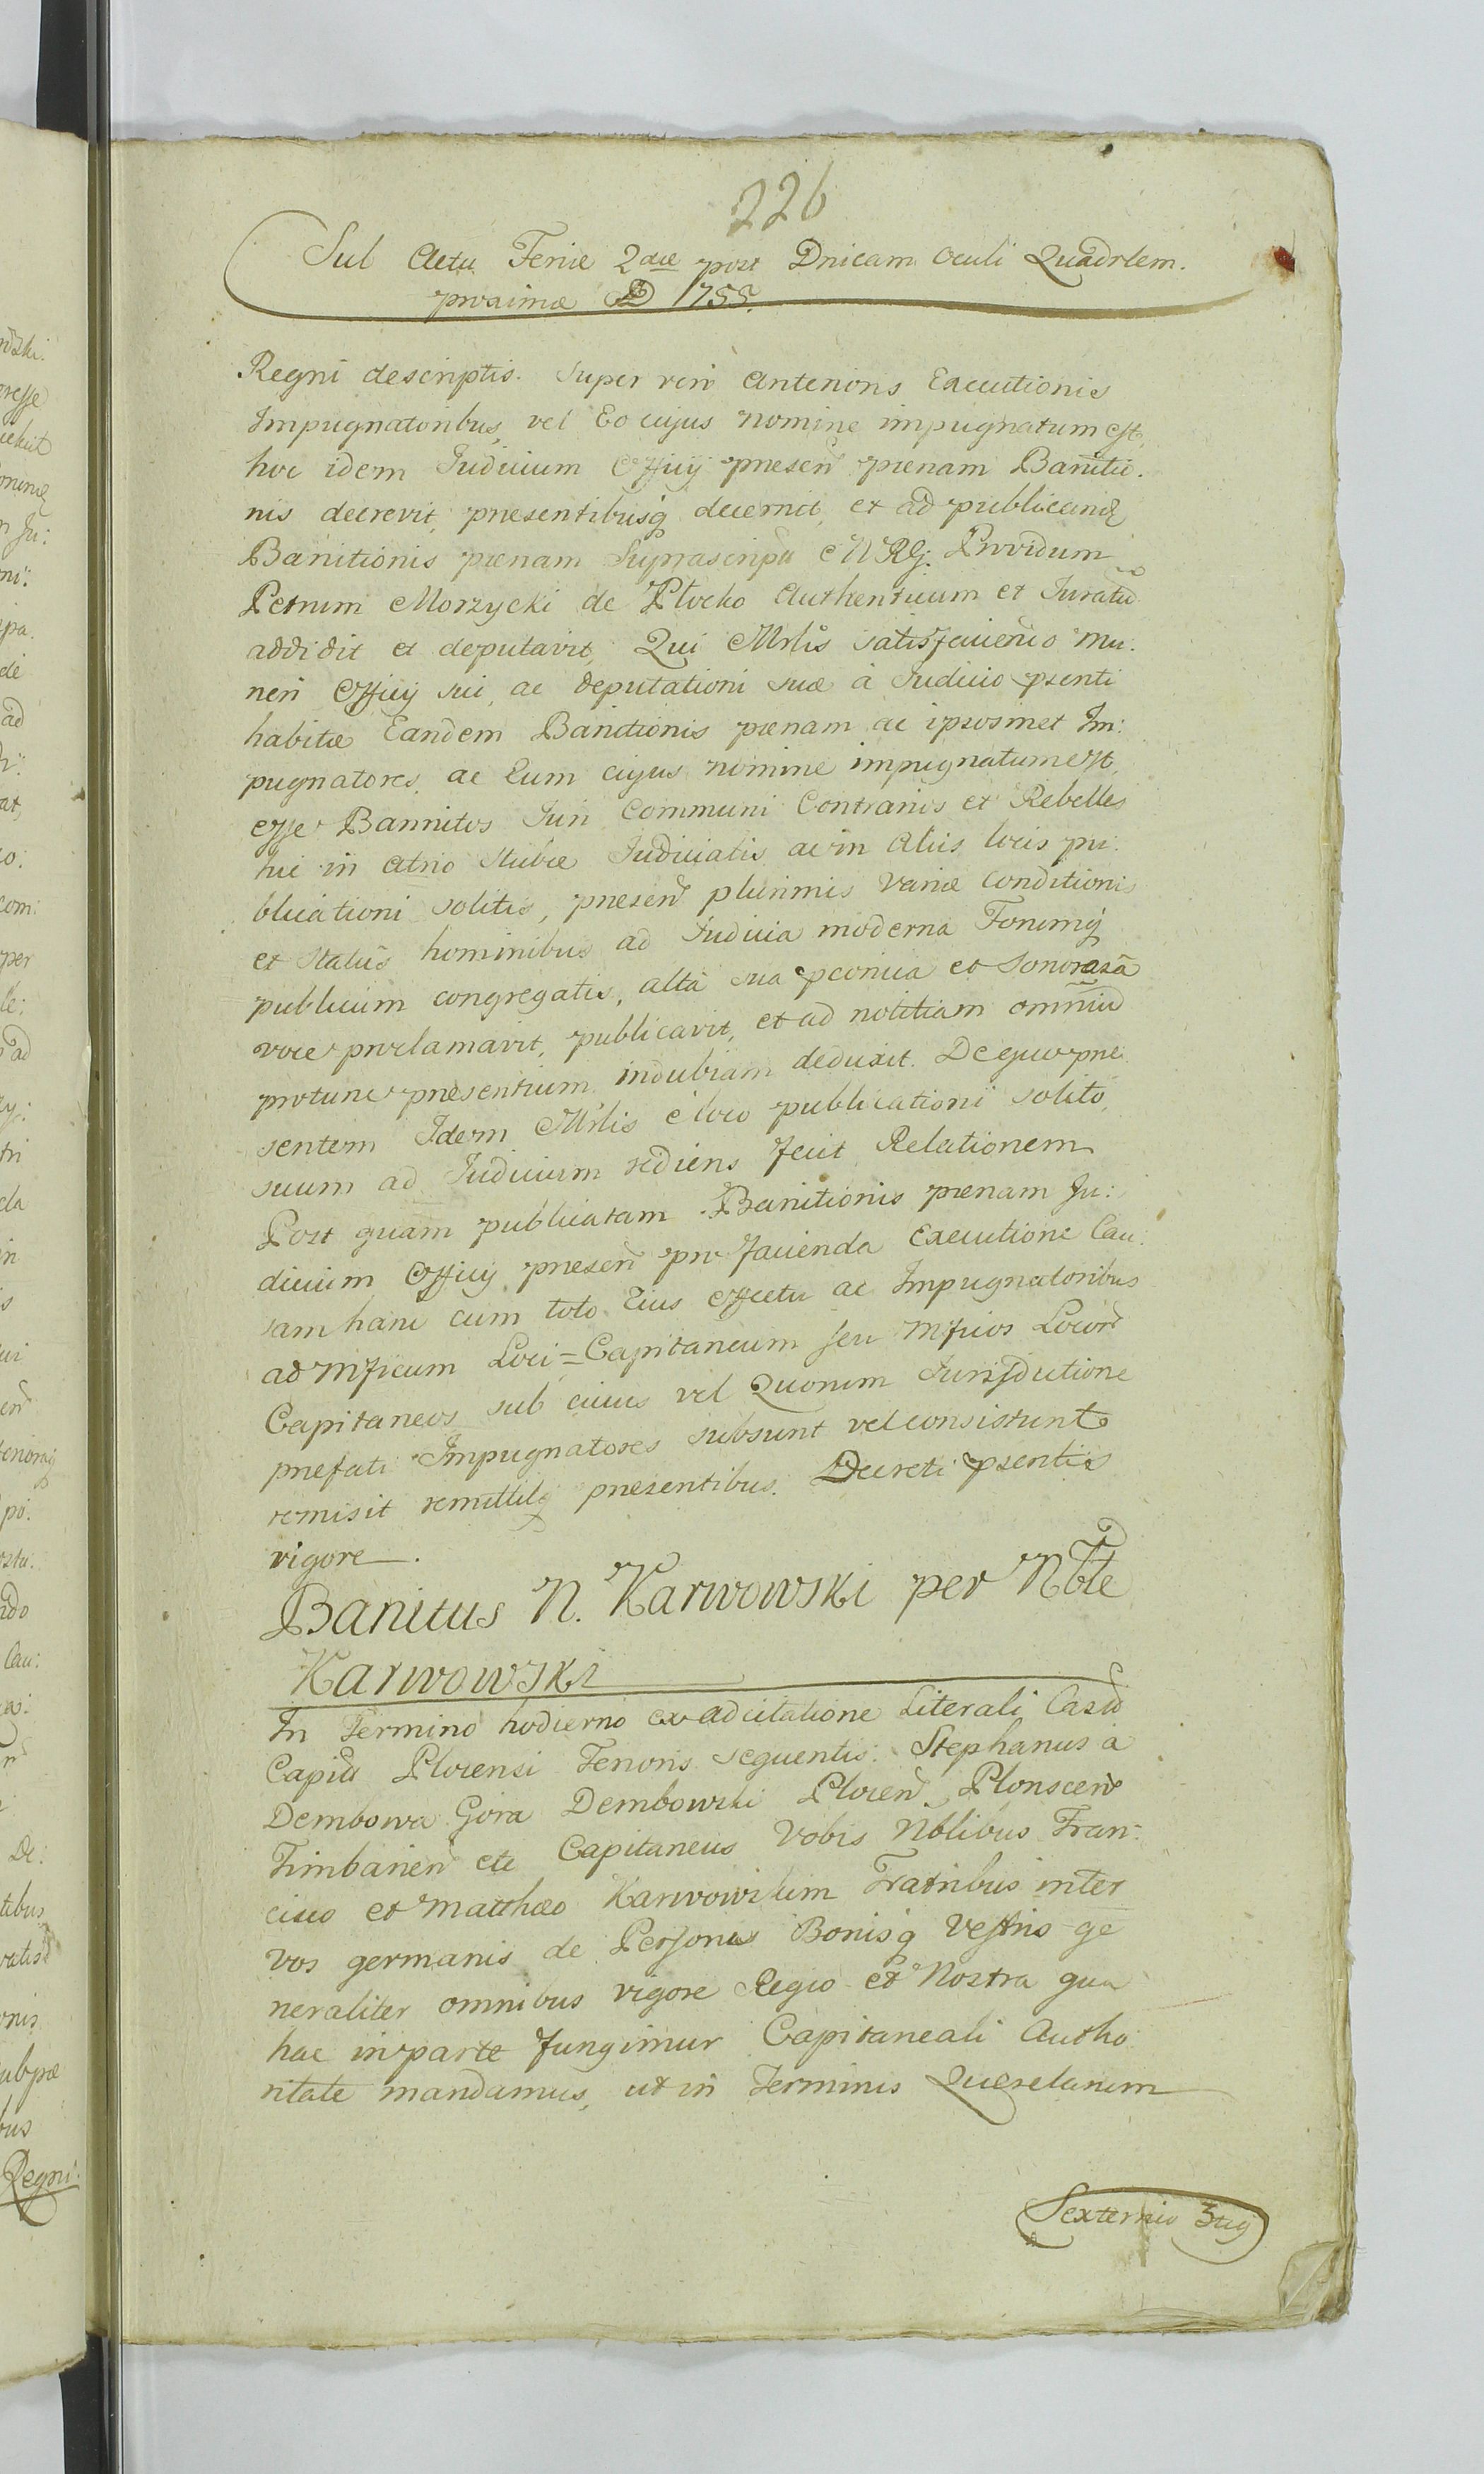 226
Sub Actu Feriæ 2dæ post Dnicam Oculi Quadrlem.
proximæ AD 1755.
Regni descriptis. Super ren anterioris Executionis
Impugnatoribus, vel Eo cujus nomine impugnatum est,
hoc idem Judicium Officij præsen pænam Banitio.
nis decrevit, præsentibusq decernit, et ad publicand
Banitionis pænam Suprascripta MRG. Providum
Petrum Morzycki de Płocko Authenticum et Juratu
addidit et deputavit, Qui Mrlis satisfaciendo mu.
neri Officij sui, ac deputationi suæ à Judicio psenti
habitæ Eandem Banitionis pænam ac ipsosmet Im:
pugnatores, ac Eum cujus nomine impugnatum est,
esse Bannitos Juri Communi Contrarios et Rebelles
hic in atrio Stubæ Judicialis ac in aliis locis pu:
blicationi solitis, præsen plurimis variæ conditionis
et statûs hominibus ad Judicia moderna Forumq
publicum congregatis, altâ sua pconica et Sonorasâ
voce proclamavit, publicavit, et ad notitiam omniu
protunc præsentium indubiam deduxit. De quo præ
sentem Idem Mrlis è loco publicationi solito,
suum ad Judicium rediens fecit Relationem
Post quam publicatam Banitionis pænam Ju:
dicium Officij præsen pro facienda Executione Cau:
sam hanc cum toto Eius effectu ac Impugnatoribus
ad Mficum Loci=Capitaneum seu Mficos Locor
Capitaneos sub cuius vel Quorum Jurisdictione
præfati Impugnatores subsunt vel consistunt
remisit remittitq præsentibus. Decreti psentis
vigore.
Banitus N. Karwowski per Nbte
Karwowski
In Termino hodierno ex adcitatione Literali Casu
Capiti Plocensi Tenoris sequentis: Stephanus à
Dembowa Gora Dembowski Plocen Plonscen
Timbarien etc Capitaneus Vobis Nblibus Fran:
cisco et Matthæo Karwowskim Fratribus inter
vos germanis de Personis Bonisq Vestris ge
neraliter omnibus vigore Regio et Nostra qua
hac in parte fungimur Capitaneali Autho
ritate mandamus, ut in Terminis Querelarum
Sexternio 3tij